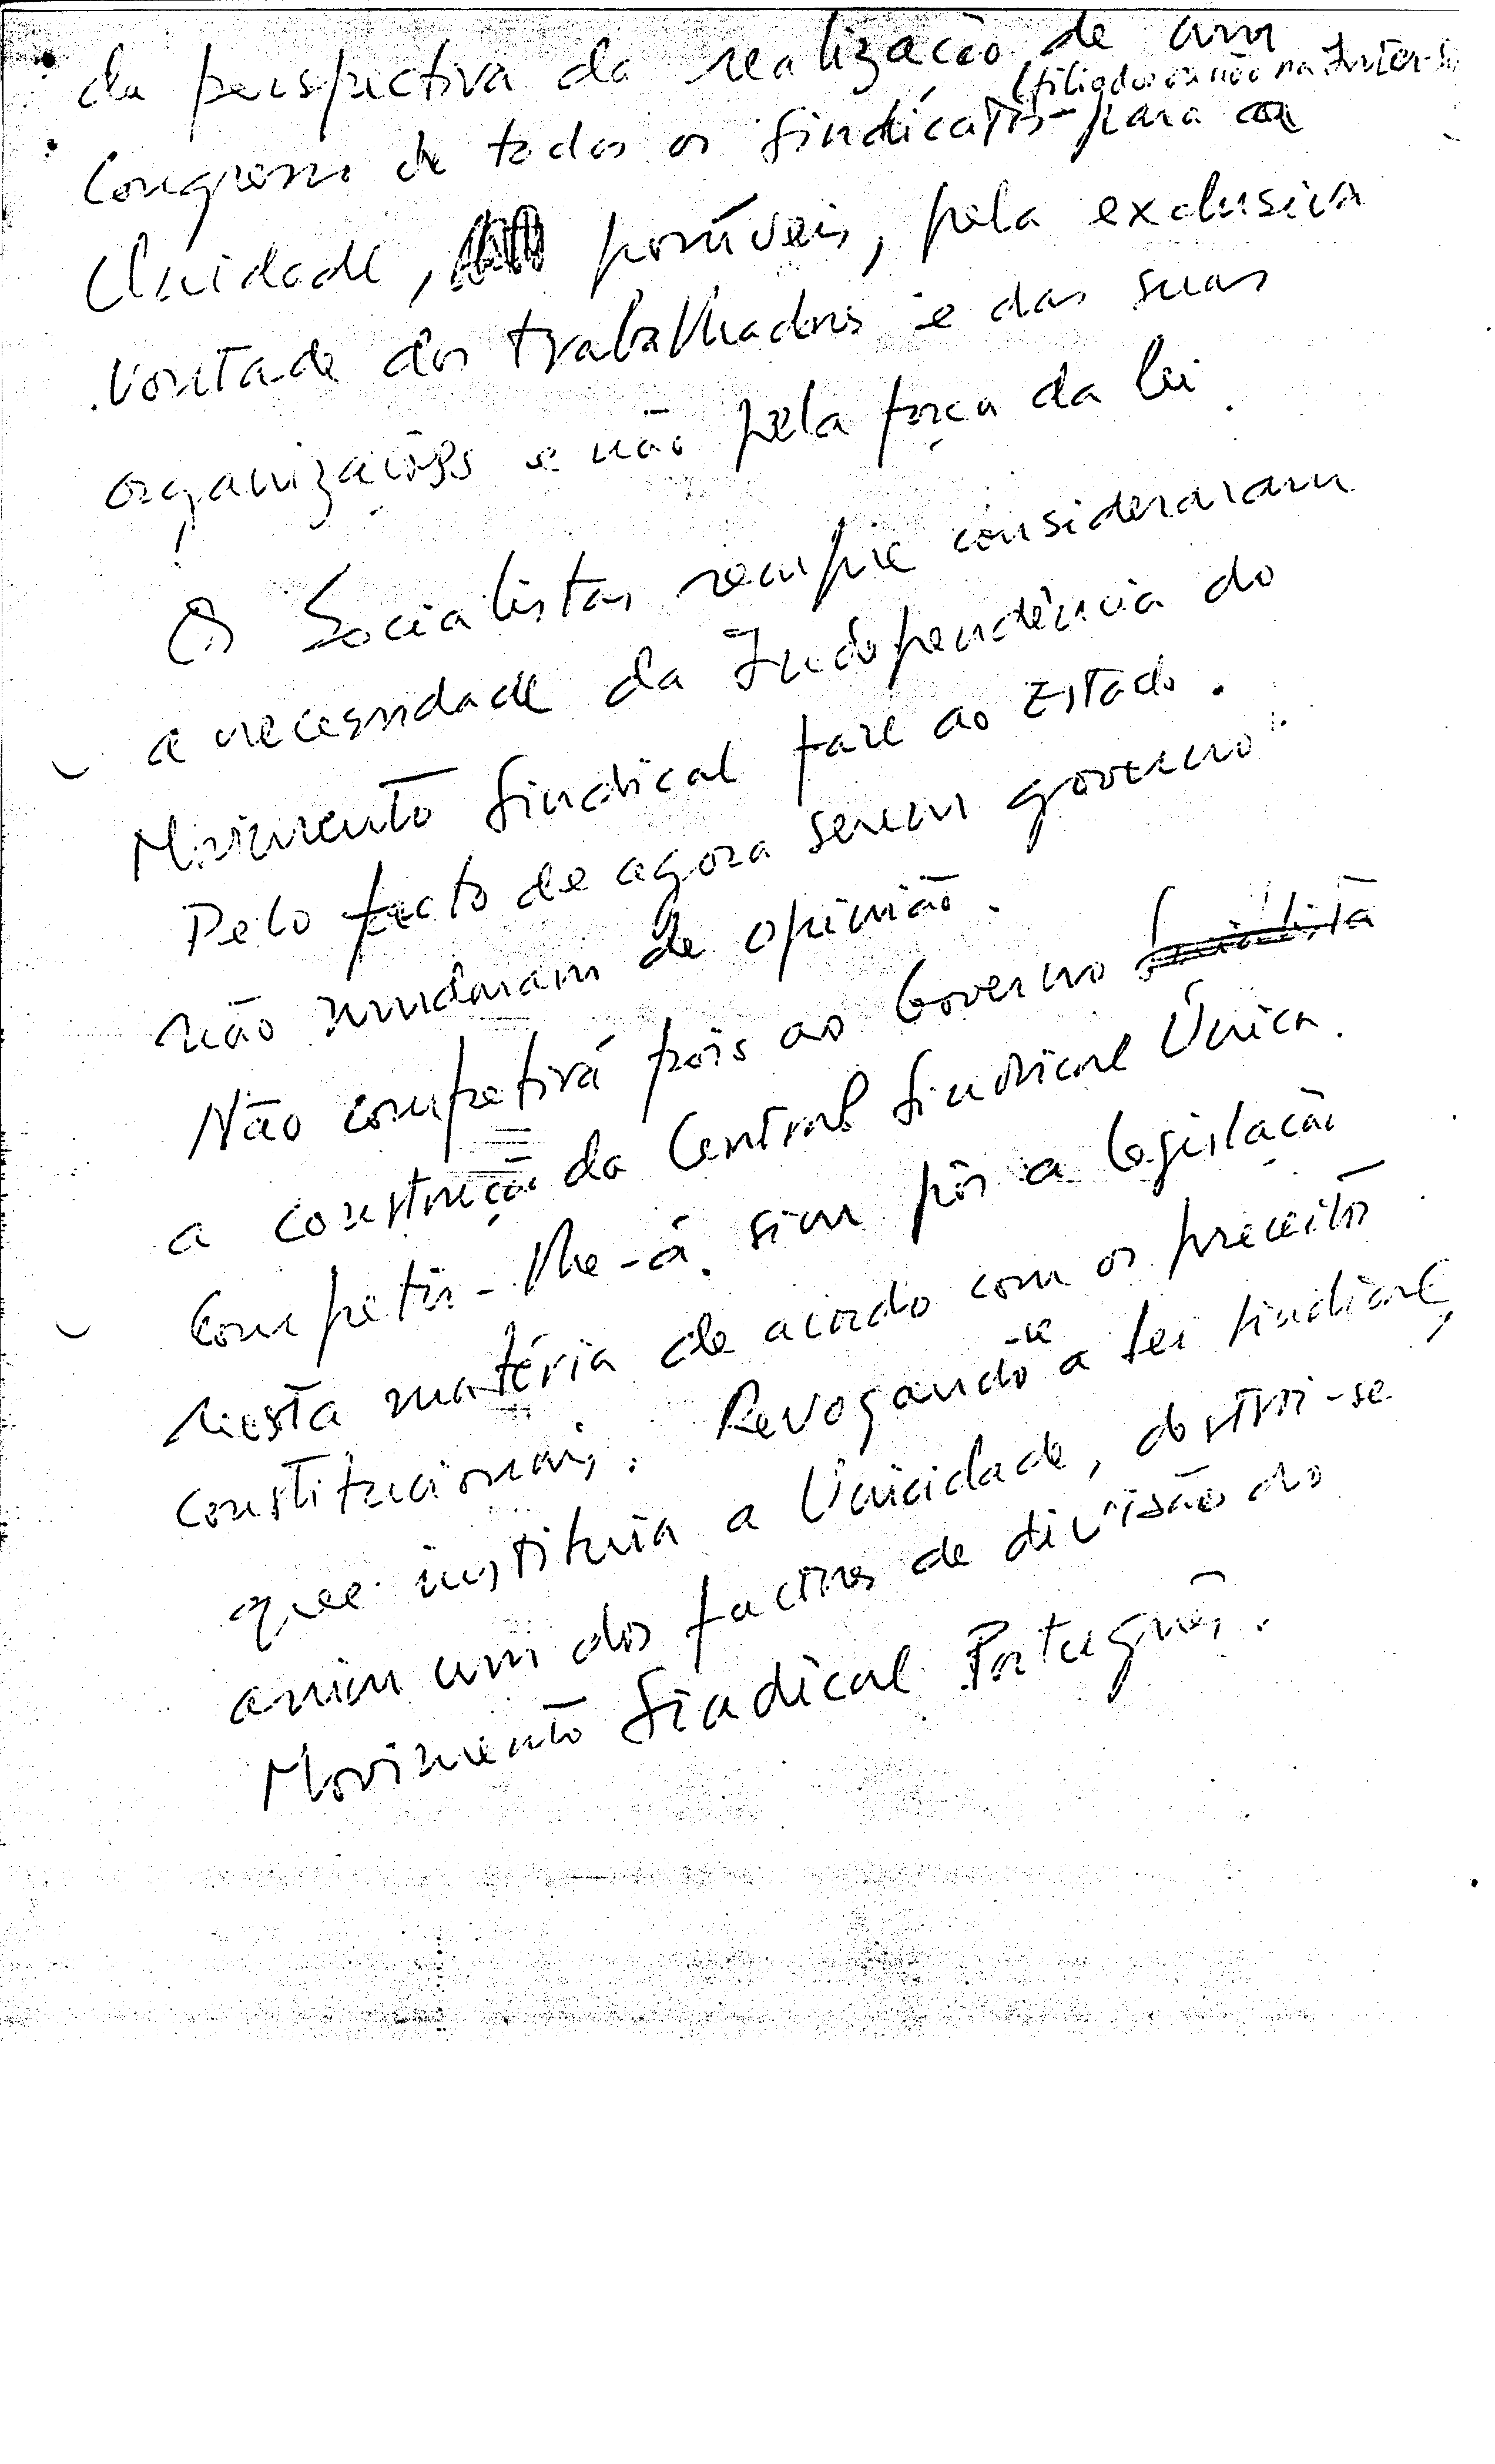 da perspectiva da realização de um
(filiados ou não na Inter-S
Congresso de todos os Sindicatos para a
Unidade, possíveis, pela exclusiva
vontade dos trabalhadores e das suas
organizações e não pela força da lei.
Os Socialistas sempre consideraram
a necessidade da Independência do
Movimento Sindical face ao Estado.
Pelo facto de agora serem governo
não mudaram de opinião.
Não competirá pois ao Governo Socialista
a construção da Central Sindical Única.
Competir-lhe-á sim pôr a legislação
nesta matéria de acordo com os preceitos
constitucionais. Revogando-se a lei sindical,
que instituia a Unicidade, destroi-se
assim um dos factores de divisão do
Movimento Sindical Português.